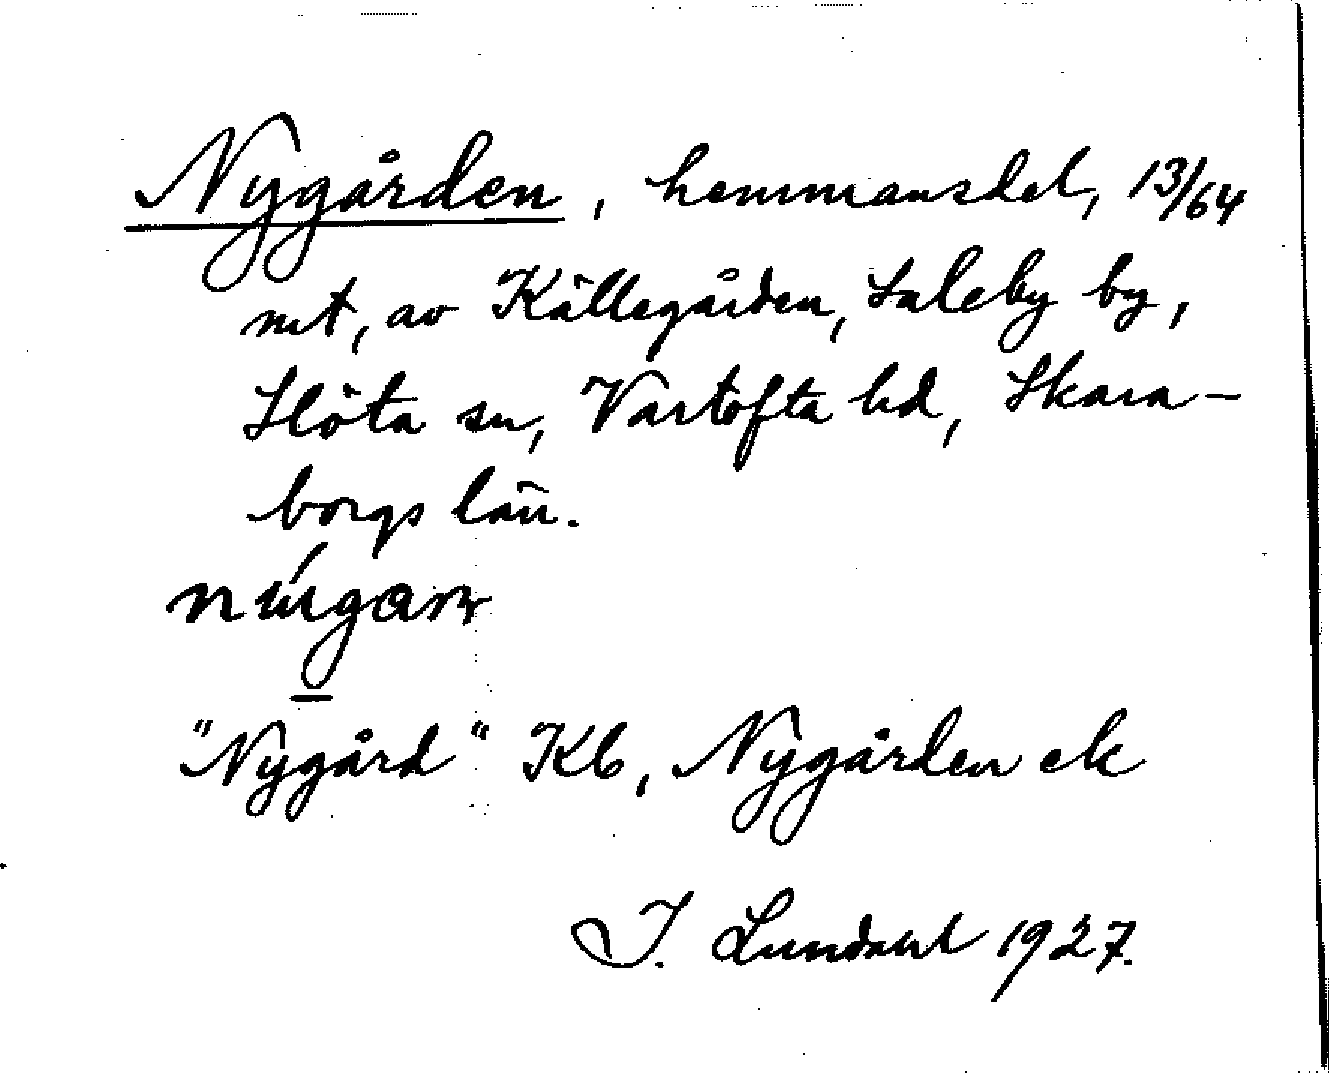 Nygården, hemmansdel, 13/64
mt, av Källegården, Saleby by,
Slöta sn, Vartofta hd, Skara-
borgs län.
"Nygård" Kb, Nygården ek
I. Lundahl 1927.